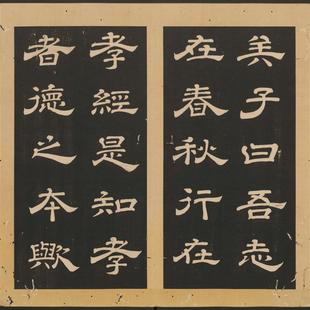 矣子曰吾志
在春秋行在
孝經是知孝
者德之本歟